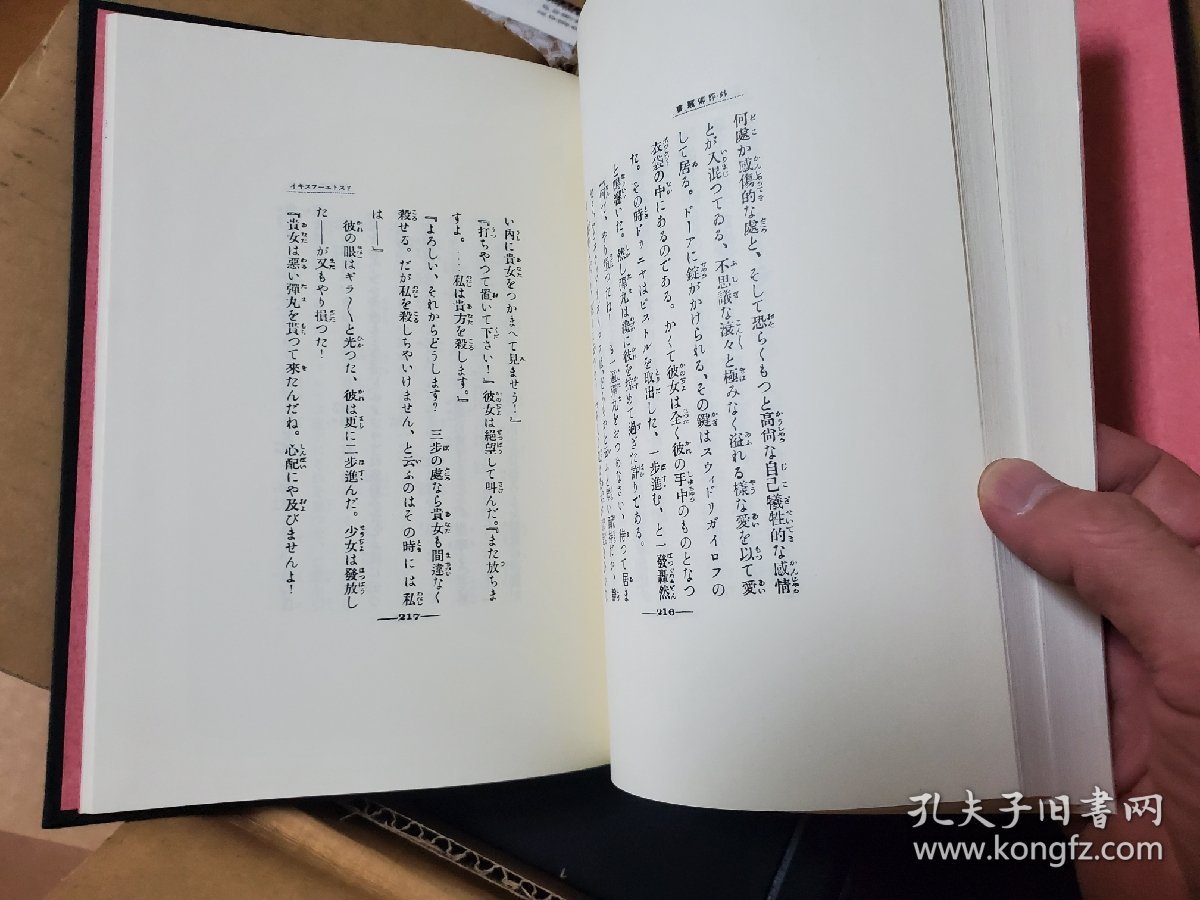 何處か感傷的な處と、そして恐らくもつと高尙な自己犧牲的な感情
とが入混つてゐる、不思議な滾々と極みなく溢れる樣な愛を以て愛
して居る。ドーアに錠がかけられる、その鍵はスウィドリガイロフの
衣袋の中にあるのである。かくて彼女は全く彼の手中のものとなつ
た。その時ドゥニャはピストルを取出した、一歩進む、と一發轟然
と響いた。然し彈丸は
216
ドストエーフスキイ
い內に貴女をつかまへて見ませう！』
『打ちやつて置いて下さい！』彼女は絕望して叫んだ。『また放ちま
すよ。……私は貴方を殺します。』
『よろしい、それからどうします？　三歩の處なら貴女も間違なく
殺せる。だが私を殺しちやいけません、と云ふのはその時には私
は――』
彼の眼はギラ〱と光つた、彼は更に二歩進んだ。少女は發放し
た――が又もやり損つた！
『貴女は惡い彈丸を貰つて來たんだね。心配にや及びませんよ！
217
孔夫子旧書网
www.kongfz.com